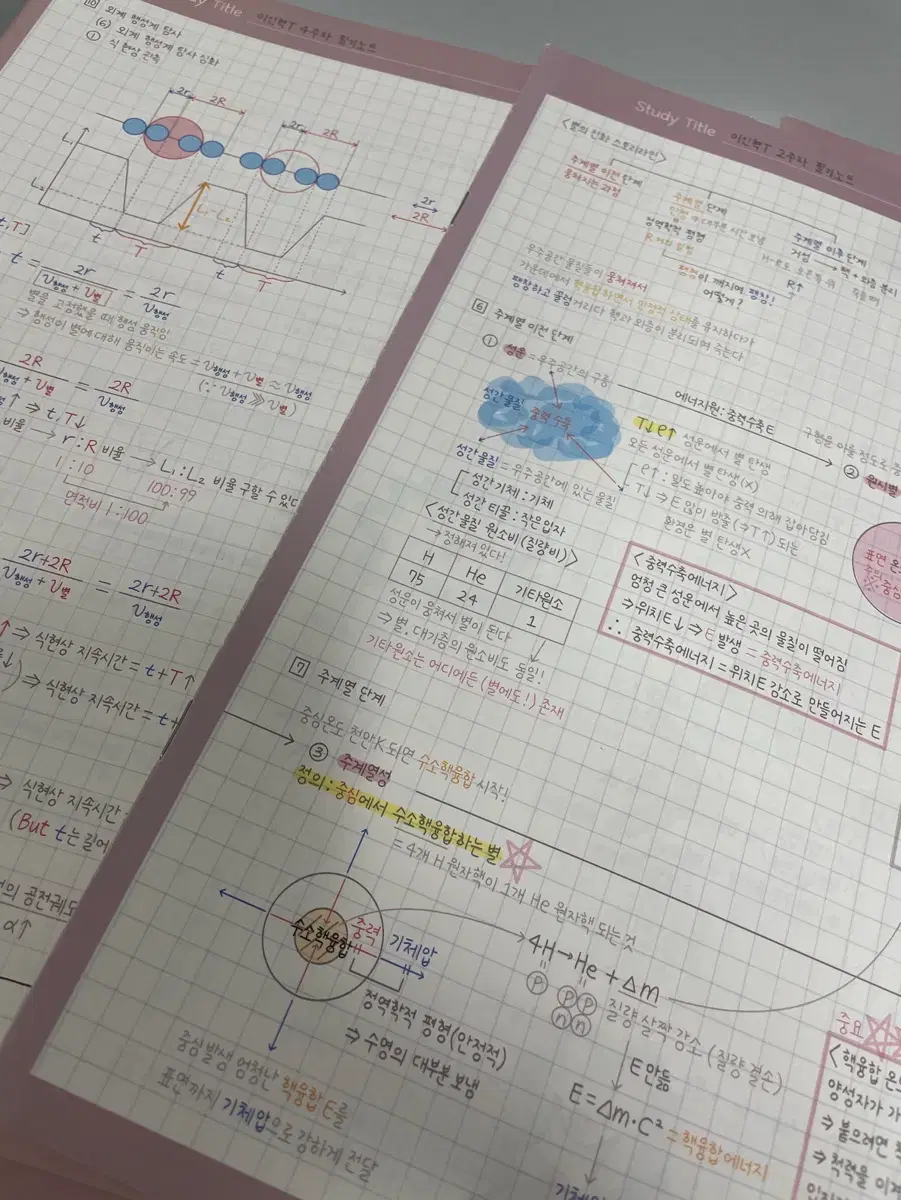 Study Title 이신혁T 4주차 필기노트
10 외계 행성계 탐사
(6) 외계 행성계 탐사 심화
① 식 현상 관측
2r 2R
2r 2R
L₁
L₂
L₁-L₂
t T
t T
2r
2R
t,T]
t = 2r / V행성 + V별 = 2r / V행성
별을 고정했을 때 행성 움직임
⇒ 행성이 별에 대해 움직이는 속도 = V행성 + V별 ≈ V행성
(∵ V행성 ⋙ V별)
2R / V행성 + V별 = 2R / V행성
↑ ⇒ t,T↓
비율 → r : R 비율 → L₁ : L₂ 비율 구할 수 있다
1 : 10 100 : 99
면적비 1 : 100
2r+2R / V행성 + V별 = 2r+2R / V행성
↑ ⇒ 식현상 지속시간 = t+T↑
↓) ⇒ 식현상 지속시간 = t+
⇒ 식현상 지속시간
(But t는 길어
의 공전궤도
α↑
Study Title 이신혁T 2주차 필기노트
<별의 진화 스토리라인>
주계열 이전 단계
뭉쳐지는 과정
주계열 단계
정역학적 평형
R 거의 일정
평형이 깨지면 팽창!
어떻게?
주계열 이후 단계
거성 → 핵 + 외층 분리
R↑ 죽을 때
우주공간 물질들이 뭉쳐져서
가운데에서 핵융합하면서 안정적 상태를 유지하다가
팽창하고 꿀렁거리다 핵과 외층이 분리되며 죽는다
6 주계열 이전 단계
① 성운 = 우주공간의 구름
에너지원 : 중력수축E
성간물질 중력 수축
T↓ρ↑ 성운에서 별 탄생
모든 성운에서 별 탄생(X)
ρ↑ : 밀도 높아야 중력 의해 잡아당김
T↓ ⇒ E 많이 방출 (⇒T↑) 되는
환경은 별 탄생X
구형을 이룰 정도로
② 원시별
표면 온
성간물질 = 우주공간에 있는 물질
성간기체 : 기체
성간 티끌 : 작은입자
<성간물질 원소비(질량비)>
→ 정해져 있다!
H He 기타원소
75 24 1
성운이 뭉쳐서 별이 된다
⇒ 별, 대기층의 원소비도 동일!
기타원소는 어디에든 (별에도!) 존재
<중력수축에너지>
엄청 큰 성운에서 높은 곳의 물질이 떨어짐
⇒ 위치E↓ ⇒ E 발생 = 중력수축에너지
∴ 중력수축에너지 = 위치E 감소로 만들어지는 E
7 주계열 단계
중심온도 천만K 되면 수소핵융합 시작!
③ 주계열성
정의 : 중심에서 수소핵융합하는 별
= 4개 H 원자핵이 1개 He 원자핵 되는것
수소핵융합 중력 기체압
정역학적 평형(안정적)
⇒ 수명의 대부분 보냄
중심발생 엄청난 핵융합 E를
표면까지 기체압으로 강하게 전달
4H → He + Δm
P P P 질량 살짝 감소 (질량 결손)
n n
E 만듦
E = Δm·C² = 핵융합에너지
기체압
중요
<핵융합 온
양성자가 가
⇒ 붙으려면
⇒ 척력을 이겨